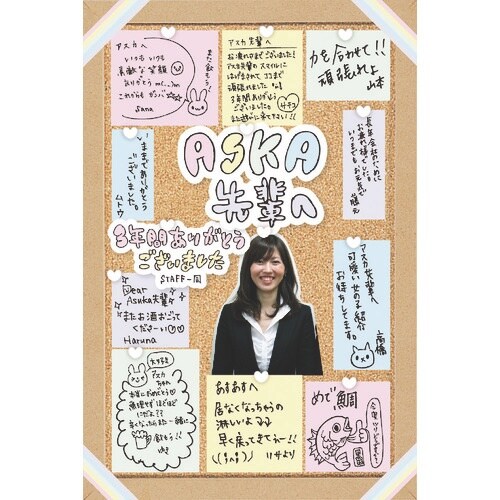 アスカへ
いつも いつも
素敵な笑顔
ありがとう m(_ _)m
これからも ガンバ☆☆
Sana
また飲もう!
アスカ先輩へ
お疲れのまでございました!
アスカ先輩の スマイルに
はげまされて ココまで
頑張れました
3年間ありがとう
ございました。
また遊びに来て下さい!!
サチヨ
力を合わせて!!
頑張れよ
山本
いままでありがとう
ございました。
ムトウ
長年会社のために
お疲れ様でした。
いつまでも お元気で
ASKA
先輩へ
3年間ありがとう
ございました
STAFF一同
Dear
Asuka先輩
またお酒おごって
くださーい♡♡
Haruna
アスカ先輩へ
可愛い女の子紹介
お待ちしてます。
高橋
大好き
アスカ
ちゃん
本当におめでとう♡
無理せずほどほど
にだよ??
また一緒に
飲もう!!
ゆき
あすあすへ
居なくなっちゃうの
淋しいよ
早く戻ってきてねー!!
リサより
めで鯛